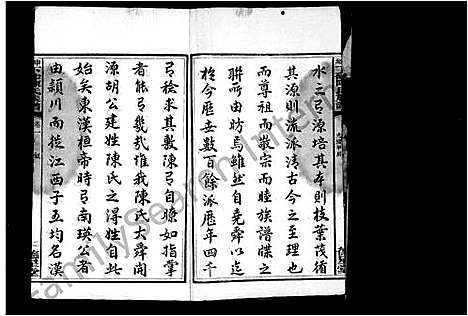 水之弓源培其本則枝葉茂循
其源則流派清古今之至理也
而尊祖而敬宗而睦族譜牒之
聯所由昉焉雖然自堯舜以迄
於今歷世數百餘派歷年四千
弓稔求其數陳弓自瞭如指掌
者能弓幾乎惟我陳氏大舜開
源胡公建姓陳氏之得姓自此
始矣東漢桓帝時弓南瑛公者
由潁川而徙江西子五均名漢